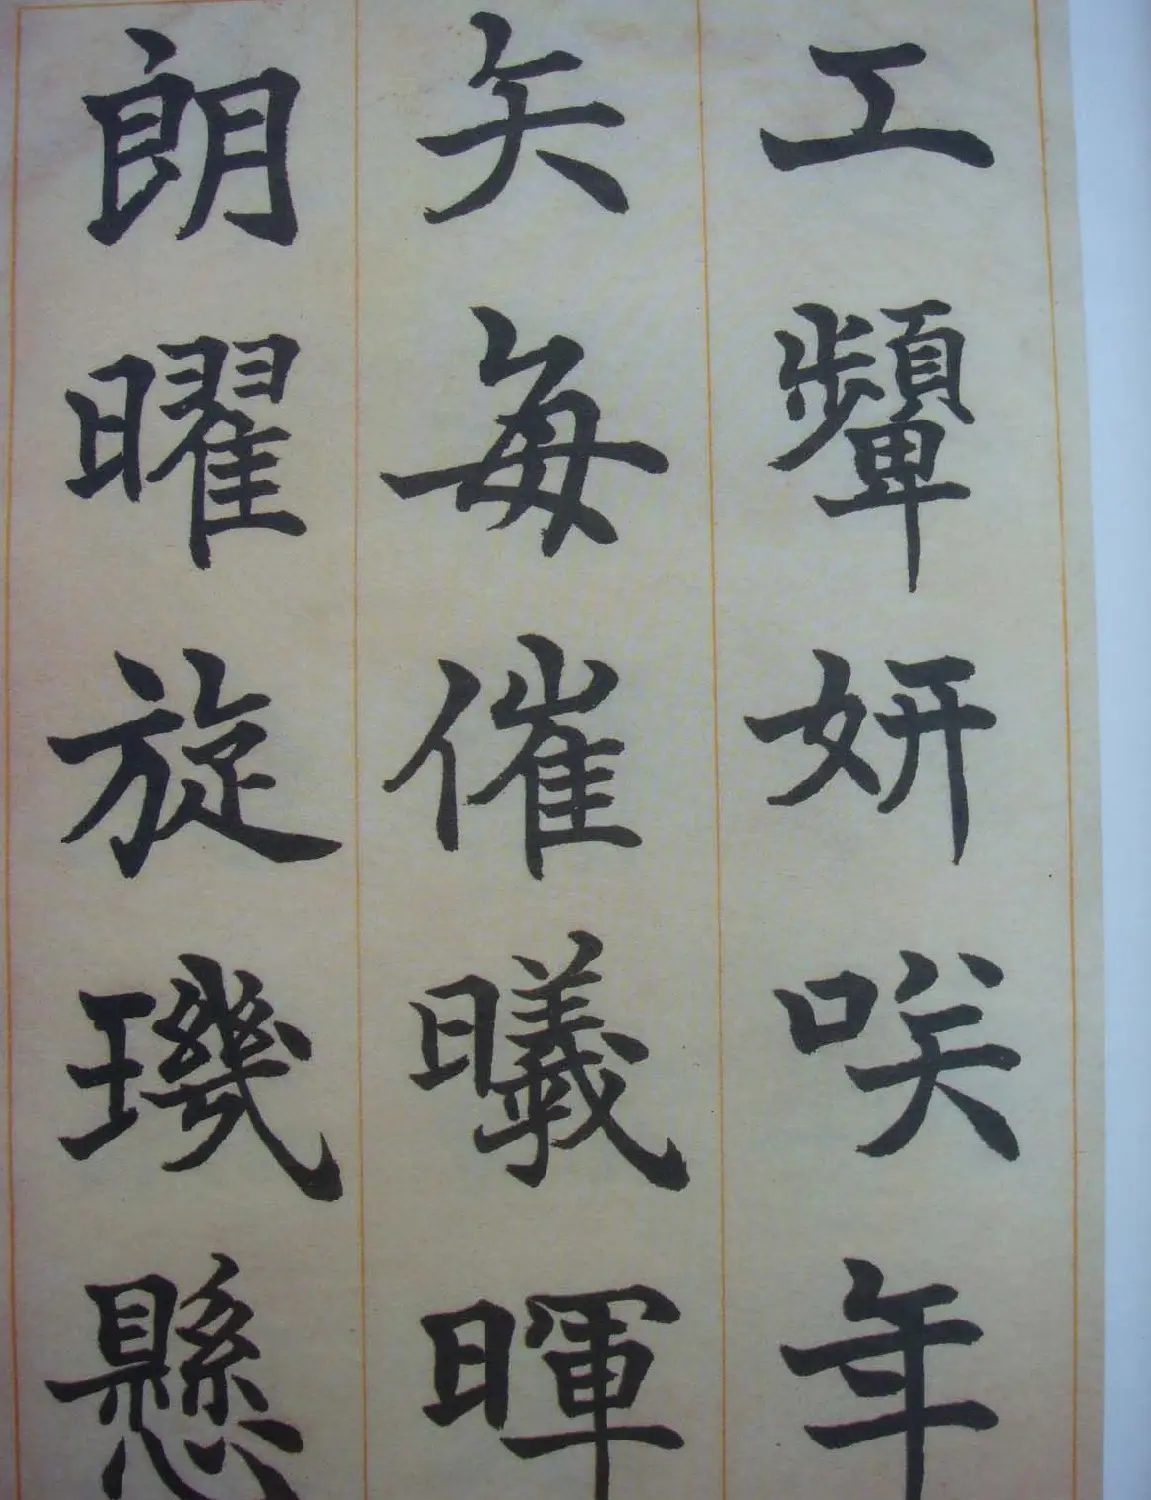 工顰妍咲年
矢每催曦暉
朗曜旋璣懸